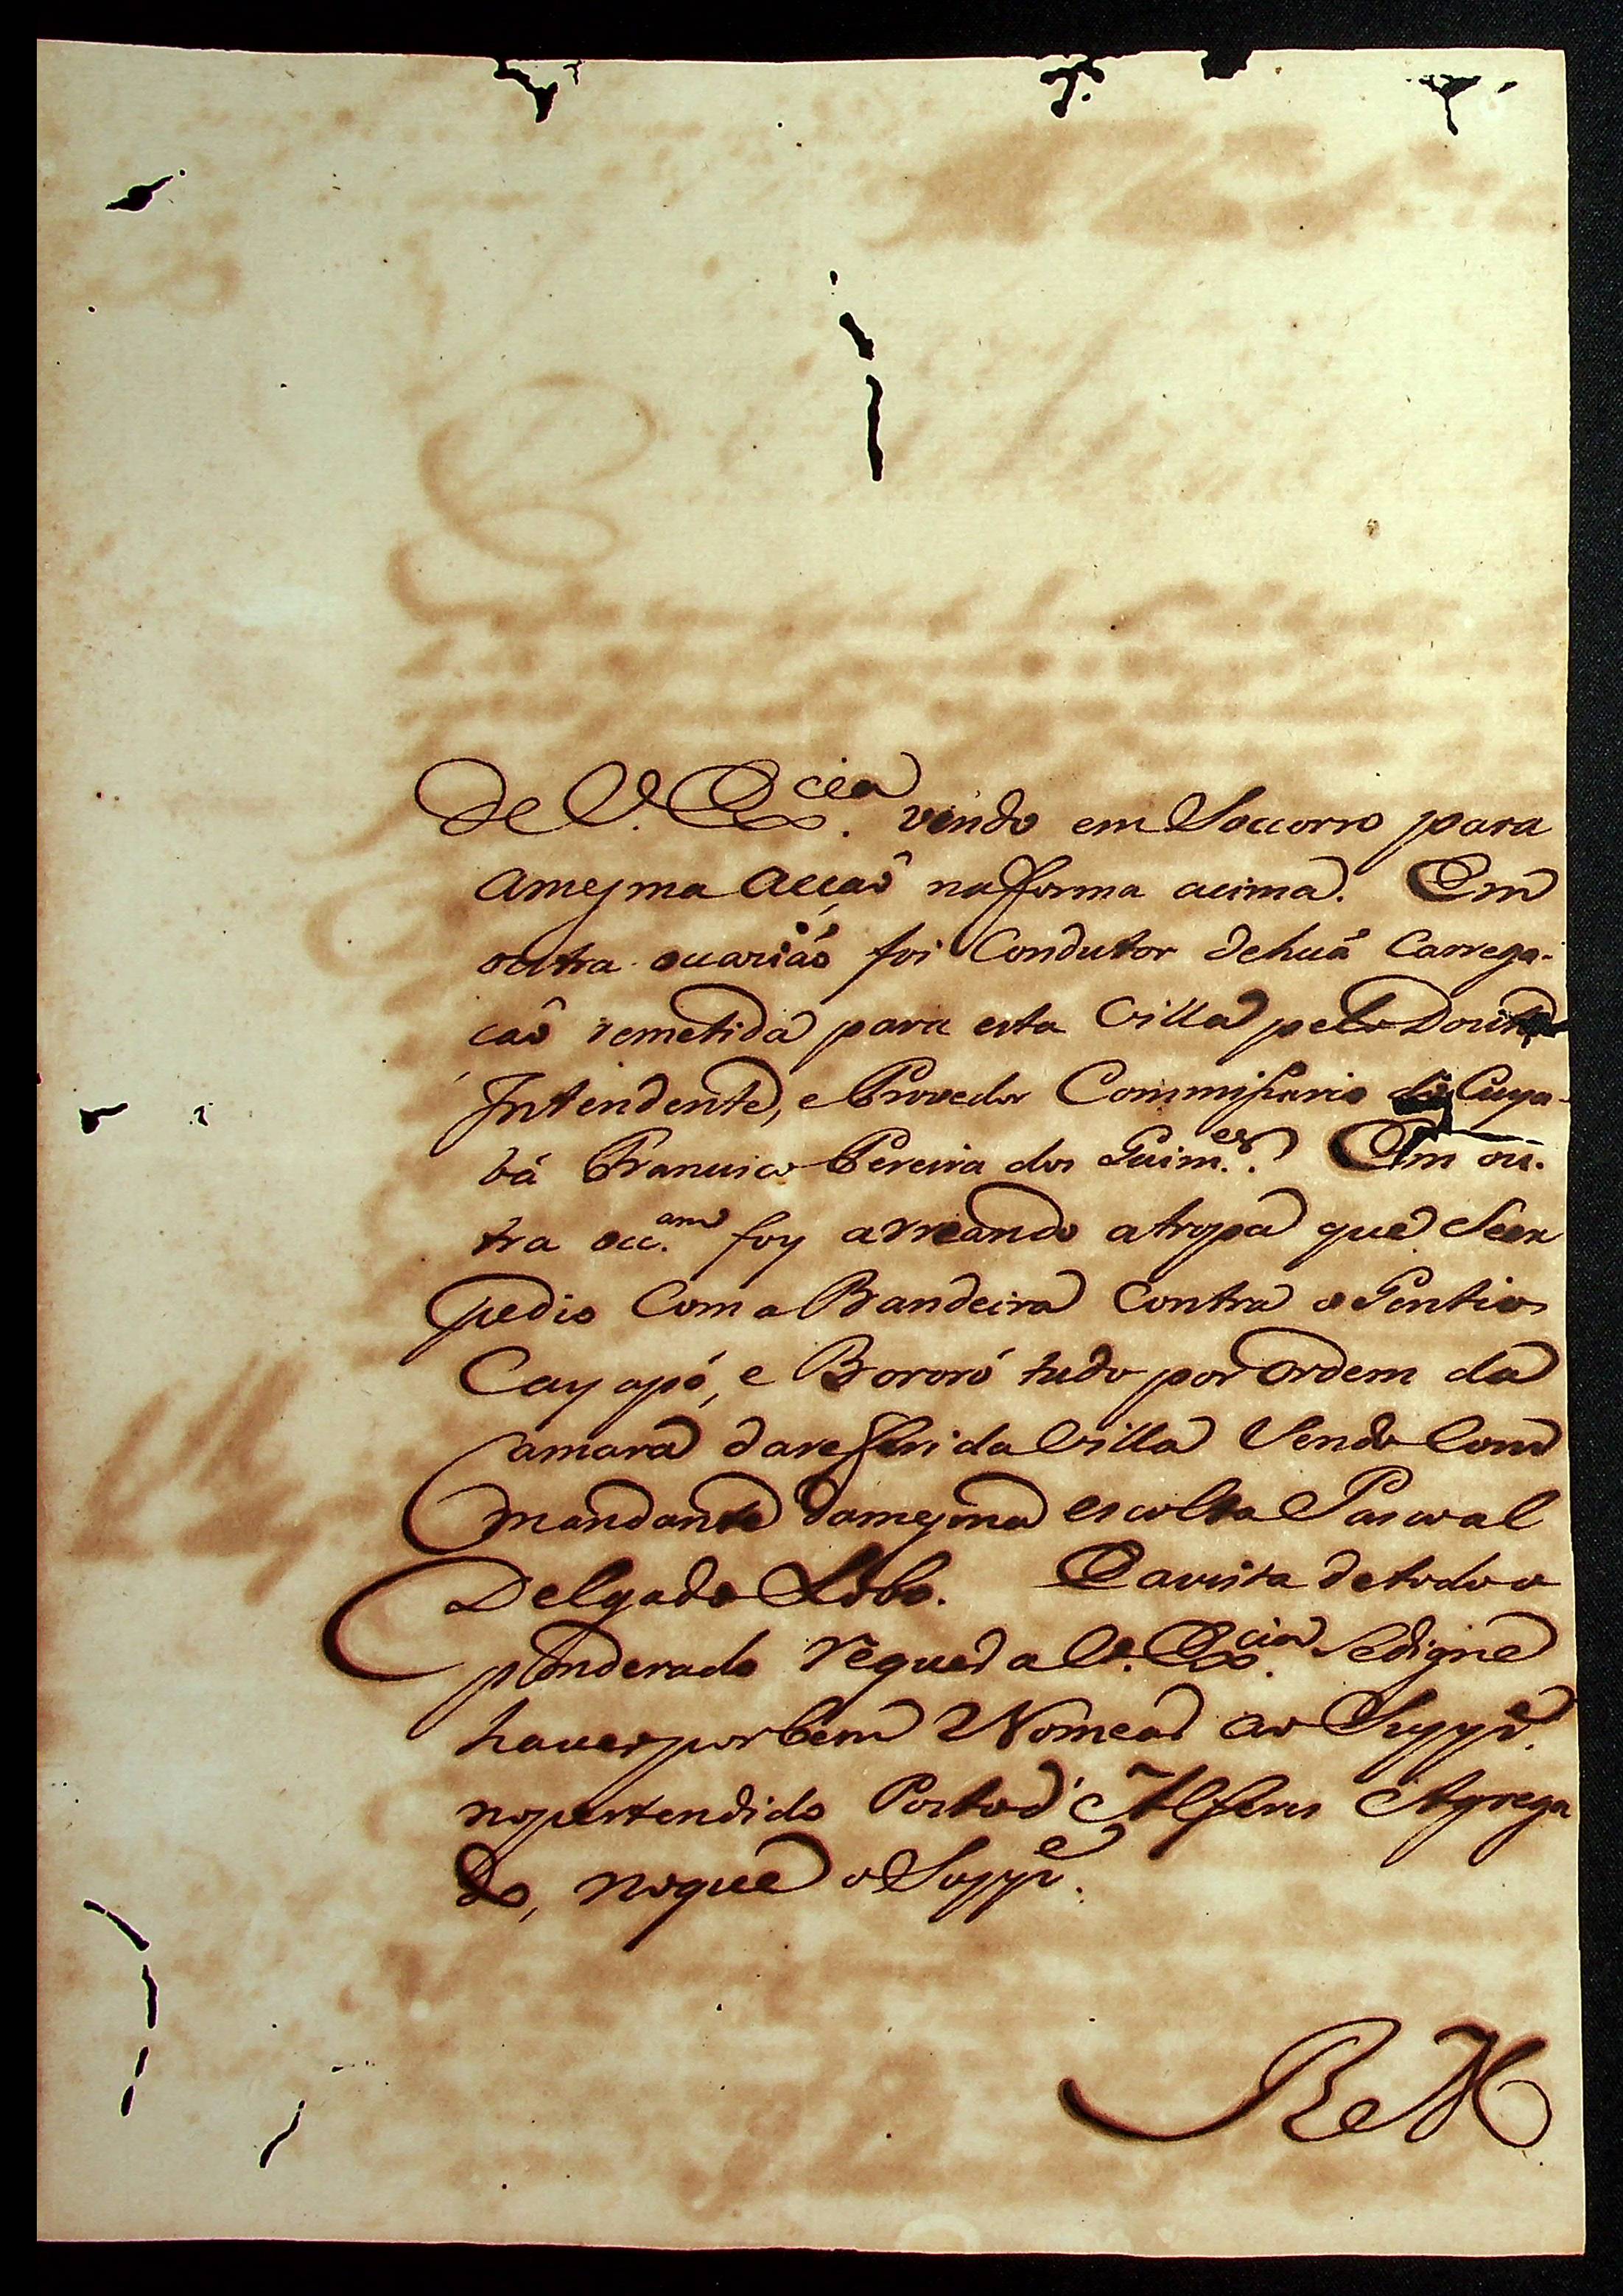 De V. Ex.cia vindo em Soccorro para
amesma acçaõ nafforma acima. Em
outra ocaziaõ foi Condutor dehuã Carrega-
çaõ remetida para esta Villa pelo Doutor
Intendente, e Provedor Commissario de Cuya-
bá Francisco Pereira dos Guim.es. Em ou-
tra occ.am foy arreando atropa que Seex
pedio Com a Bandeira Contra o Gentios
Cayapó, e Bororó tudo por ordem da
Camara dareferida Villa Sendo Com
mandante damesma escolta Pascoal
Delgado Lobo. E avista detodo o
ponderado requer a V. Ex.cia Sedigne
haver por bem Nomear ao Supp.e
nopertendido Posto d'Alferes Agrega
do, noque o Supp.e.
R e M